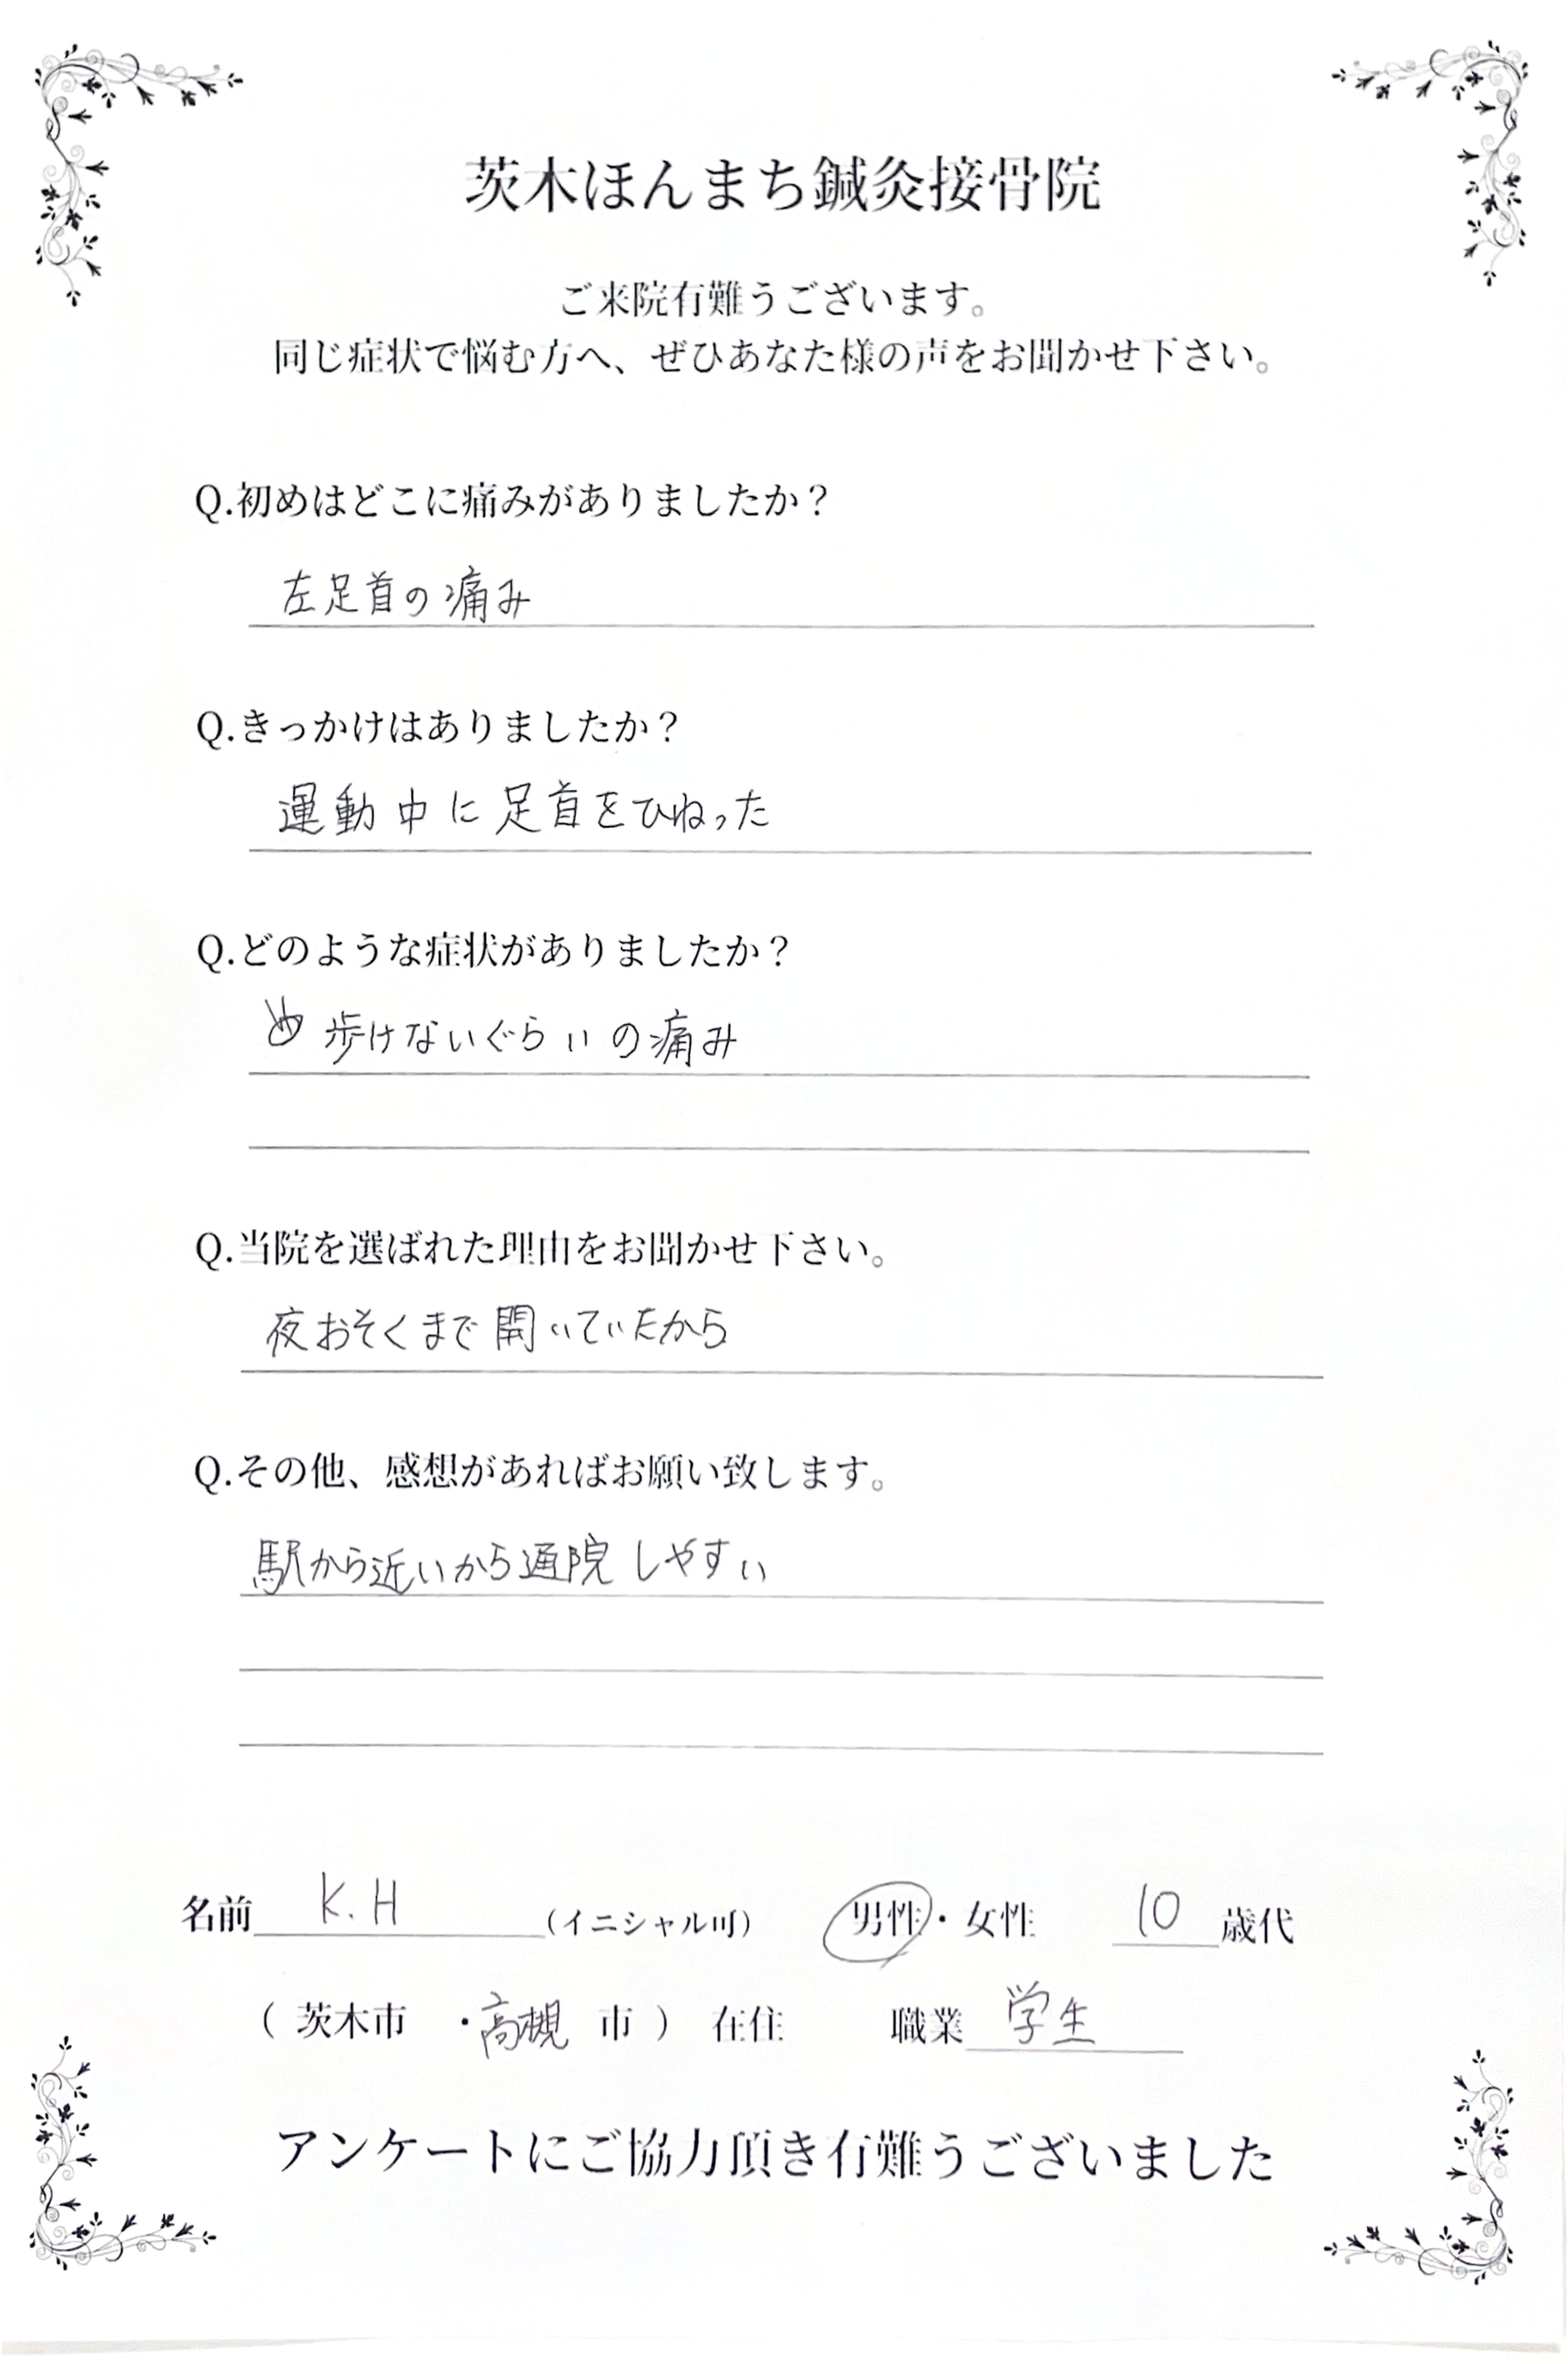 茨木ほんまち鍼灸接骨院
ご来院有難うございます。
同じ症状で悩む方へ、ぜひあなた様の声をお聞かせ下さい。
Q.初めはどこに痛みがありましたか？
左足首の痛み
Q.きっかけはありましたか？
運動中に足首をひねった
Q.どのような症状がありましたか？
歩けないぐらいの痛み
Q.当院を選ばれた理由をお聞かせ下さい。
夜おそくまで開いていたから
Q.その他、感想があればお願い致します。
駅から近いから通院しやすい
名前 K.H (イニシャル可) 男性・女性 10 歳代
( 茨木市 ・高槻 市 ) 在住 職業 学生
アンケートにご協力頂き有難うございました